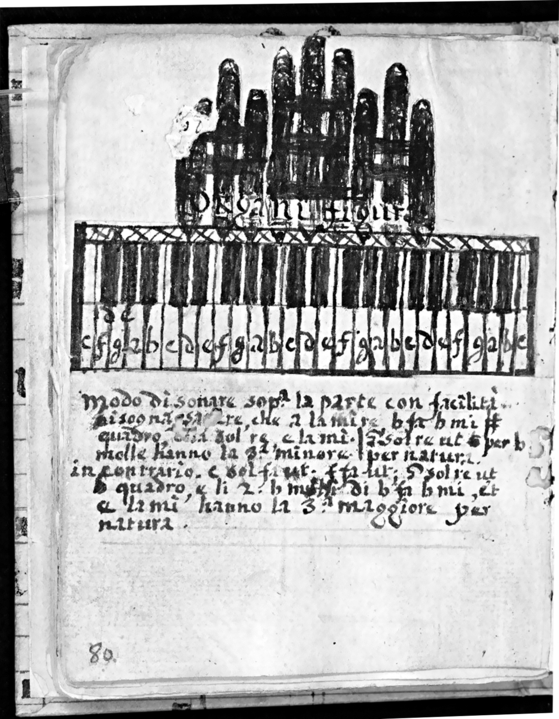 Organi figura
c d e
c f g a b c d e f g a b c d e f g a b c d e f g a b c
Modo di sonare sop.ª la parte con facilità.
bisogna sapere, che a la mi re, b fa b mi #
quadro, dla sol re, e la mi. | G sol re ut b per b
molle hanno la 3.ª minore | per natura.
in contrario. c sol fa ut. f fa ut. G sol re ut
b quadro, e li 2. b molli di b fa b mi, et
e la mi hanno la 3.ª maggiore per
natura.
80.